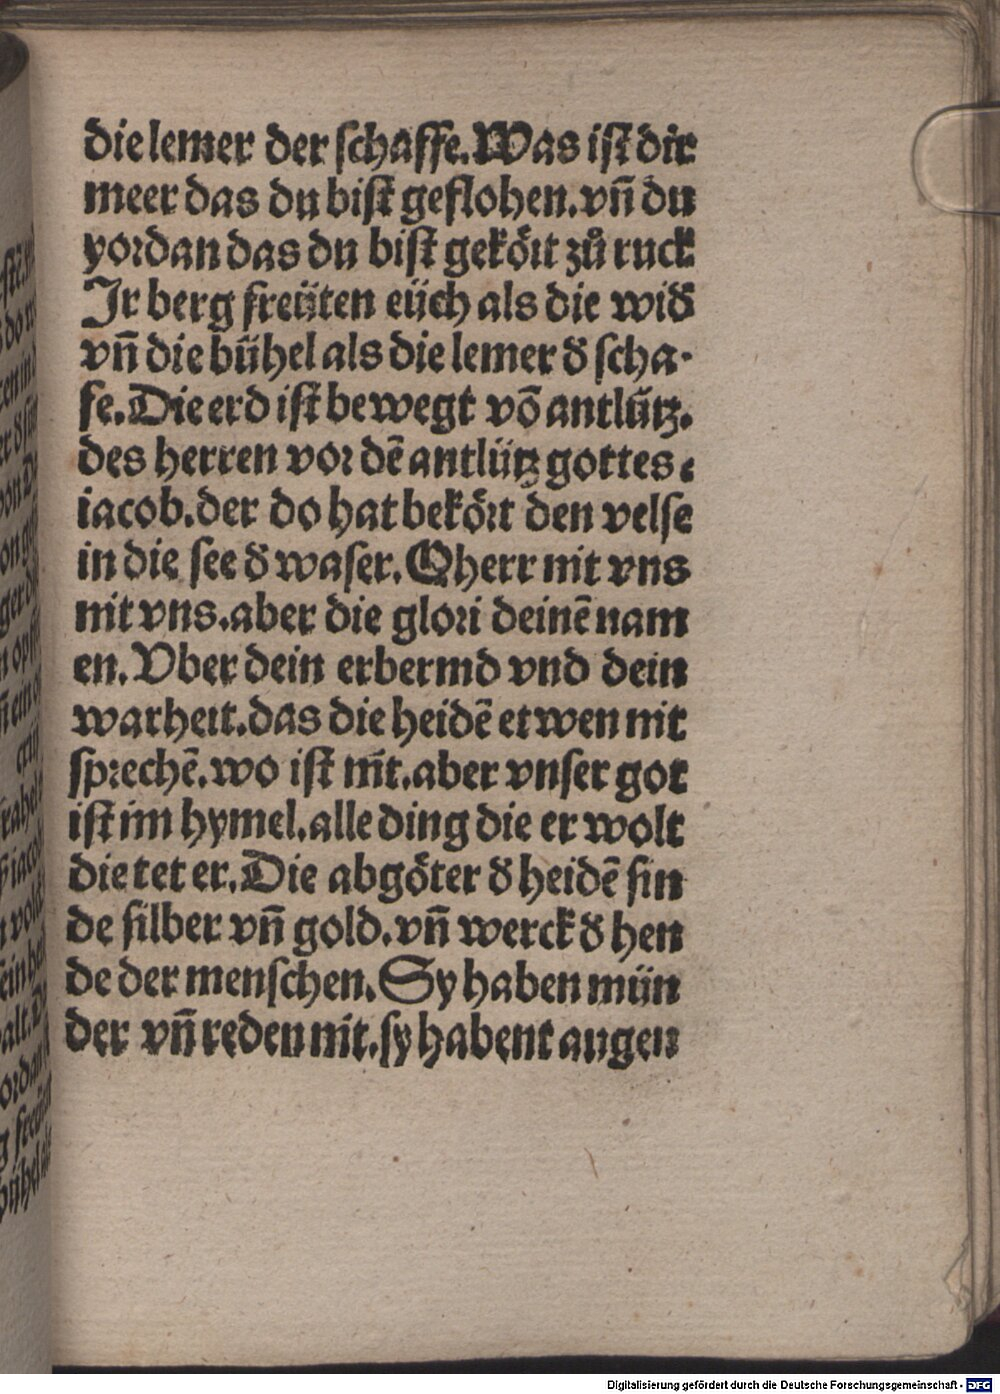 die lemer der schaffe. Was ist dir
meer das du bist geflohen. vn̄ du
yordan das du bist gekoͤrt zů ruck
Jr berg freüten eüch als die wid̕
vn̄ die bühel als die lemer d̕ scha-
fe. Die erd ist bewegt vō antlütz.
des herren vor dē antlütz gottes.
iacob. der do hat bekoͤrt den velse
in die see d̕ waser. O herr nit vns
nit vns. aber die glori deinē nam
en. Vber dein erbermd vnd dein
warheit. das die heidē etwen nit
sprechē. wo ist
aber vnser got
ist im hymel. alle ding die er wolt
die tet er. Die abgoͤter d̕ heidē sin
de silber vn̄ gold. vn̄ werck d̕ hen
de der menschen. Sy haben mün
der vn̄ reden nit. sy habent augen
Digitalisierung gefördert durch die Deutsche Forschungsgemeinschaft - DFG